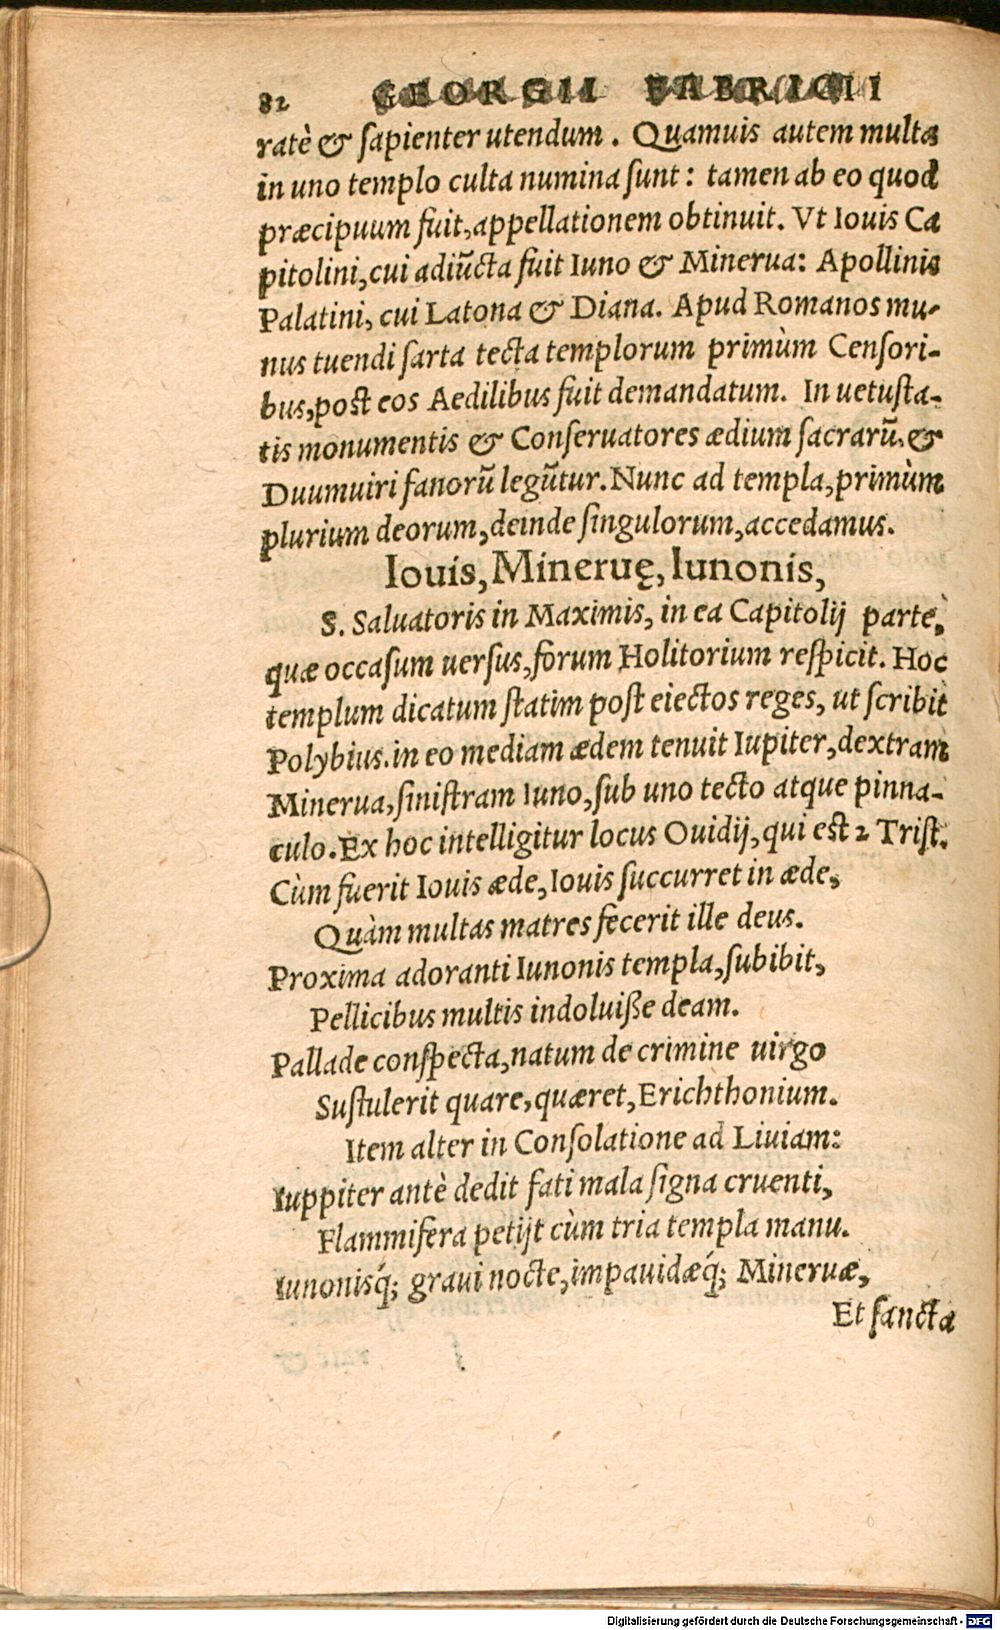 82 GEORGII FABRICII
ratè & ſapienter utendum. Quamuis autem multa
in uno templo culta numina ſunt: tamen ab eo quod
præcipuum fuit, appellationem obtinuit. Vt Iouis Ca
pitolini, cui adiũcta fuit Iuno & Minerua: Apollinis
Palatini, cui Latona & Diana. Apud Romanos mu-
nus tuendi ſarta tecta templorum primùm Cenſori-
bus, poſt eos Aedilibus fuit demandatum. In uetuſta-
tis monumentis & Conſeruatores ædium ſacrarũ, &
Duumuiri fanorũ legũtur. Nunc ad templa, primùm
plurium deorum, deinde ſingulorum, accedamus.
Iouis, Mineruę, Iunonis,
S. Saluatoris in Maximis, in ea Capitolij parte,
quæ occaſum uerſus, forum Holitorium reſpicit. Hoc
templum dicatum ſtatim poſt eiectos reges, ut ſcribit
Polybius. in eo mediam ædem tenuit Iupiter, dextram
Minerua, ſiniſtram Iuno, ſub uno tecto atque pinna-
culo. Ex hoc intelligitur locus Ouidij, qui eſt 2 Triſt.
Cùm fuerit Iouis æde, Iouis ſuccurret in æde,
Quàm multas matres fecerit ille deus.
Proxima adoranti Iunonis templa, ſubibit,
Pellicibus multis indoluiſſe deam.
Pallade conſpecta, natum de crimine uirgo
Suſtulerit quare, quæret, Erichthonium.
Item alter in Conſolatione ad Liuiam:
Iuppiter antè dedit fati mala ſigna cruenti,
Flammifera petijt cùm tria templa manu.
Iunonisq́; graui nocte, impauidæq́; Mineruæ,
Et ſancta
Digitalisierung gefördert durch die Deutsche Forschungsgemeinschaft - DFG